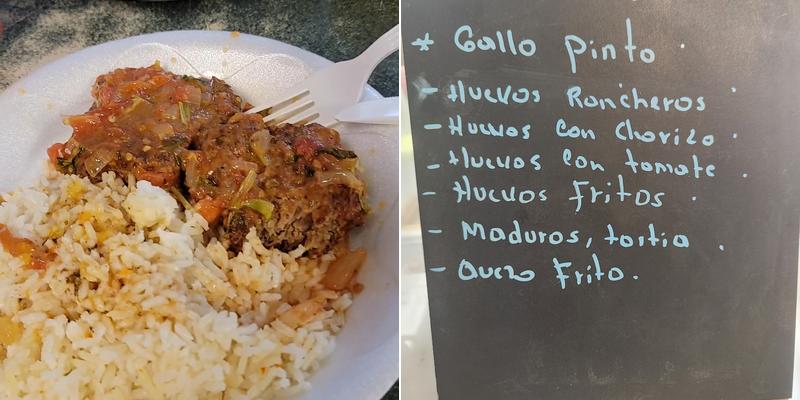 * Gallo pinto.
- Huevos Roncheros.
- Huevos con chorizo.
- Huevos con tomate.
- Huevos Fritos.
- Maduros, tortia.
- Quezo Frito.